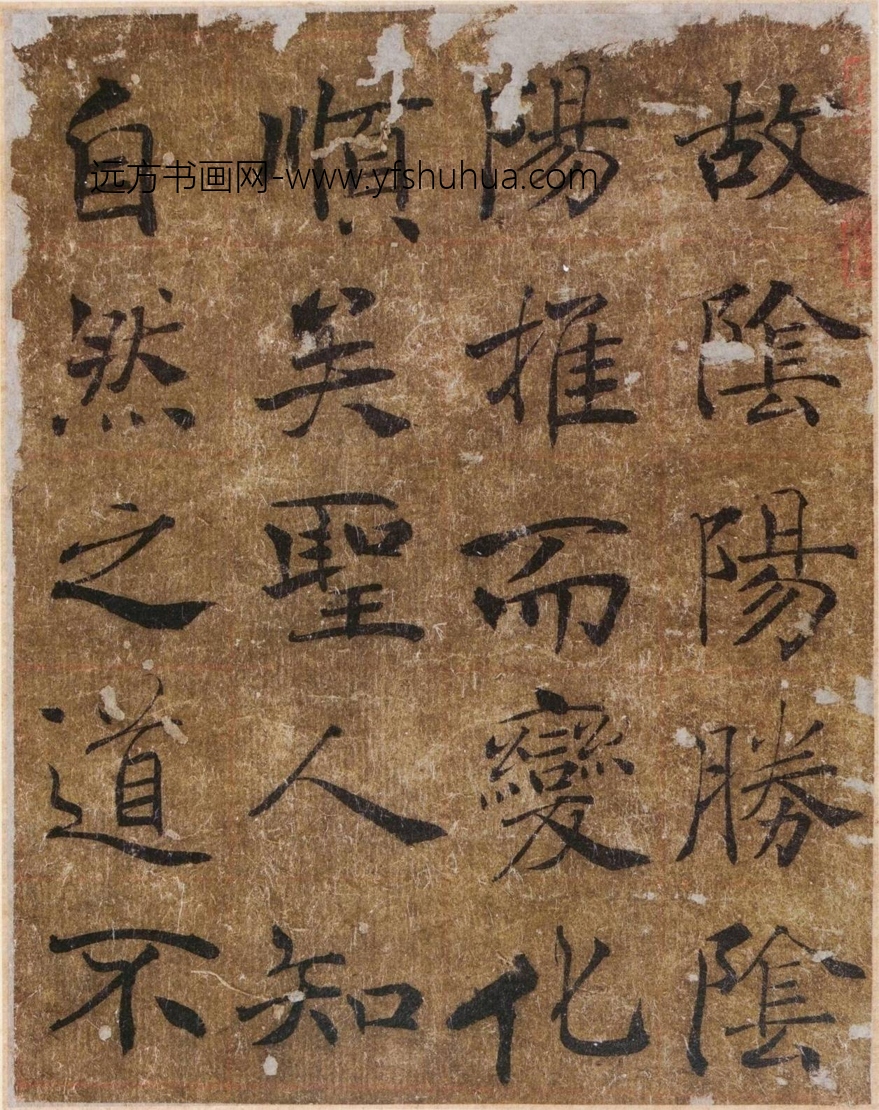 故陰陽勝陰
陽推而變化
順矣聖人知
自然之道不
远方书画网-www.yfshuhua.com